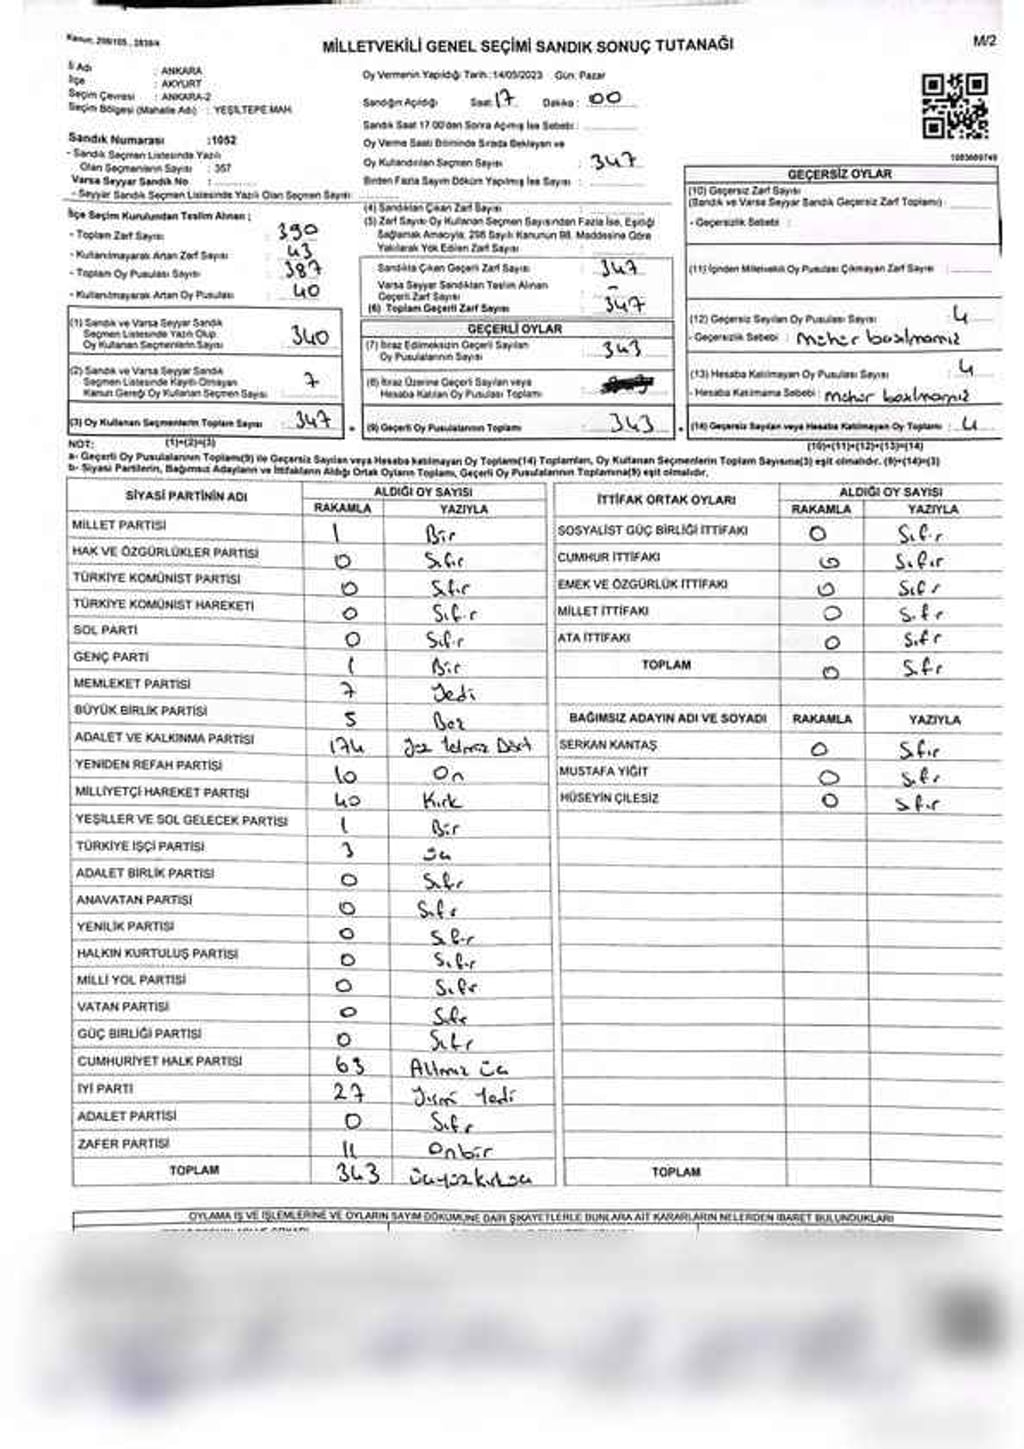 Kanun: 298/105, 2839/4
MİLLETVEKİLİ GENEL SEÇİMİ SANDIK SONUÇ TUTANAĞI
M/2
İl Adı : ANKARA
İlçe : AKYURT
Seçim Çevresi : ANKARA-2
Seçim Bölgesi (Mahalle Adı) : YEŞİLTEPE MAH.
Sandık Numarası : 1052
- Sandık Seçmen Listesinde Yazılı
Olan Seçmenlerin Sayısı : 357
Varsa Seyyar Sandık No :
- Seyyar Sandık Seçmen Listesinde Yazılı Olan Seçmen Sayısı:
Oy Vermenin Yapıldığı Tarih : 14/05/2023 Gün: Pazar
Sandığın Açıldığı Saat: 17 Dakika : 00
Sandık Saat 17.00'den Sonra Açılmış İse Sebebi :
Oy Verme Saati Bitiminde Sırada Bekleyen ve
Oy Kullandırılan Seçmen Sayısı : 347
Birden Fazla Sayım Döküm Yapılmış İse Sayısı :
1083689749
İlçe Seçim Kurulundan Teslim Alınan :
- Toplam Zarf Sayısı : 390
- Kullanılmayarak Artan Zarf Sayısı : 43
- Toplam Oy Pusulası Sayısı : 387
- Kullanılmayarak Artan Oy Pusulası : 40
(1) Sandık ve Varsa Seyyar Sandık
Seçmen Listesinde Yazılı Olup
Oy Kullanan Seçmenlerin Sayısı : 340
(2) Sandık ve Varsa Seyyar Sandık
Seçmen Listesinde Kayıtlı Olmayan
Kanun Gereği Oy Kullanan Seçmen Sayısı : 7
(3) Oy Kullanan Seçmenlerin Toplam Sayısı : 347
(1)+(2)=(3)
(4) Sandıktan Çıkan Zarf Sayısı :
(5) Zarf Sayısı Oy Kullanan Seçmen Sayısından Fazla İse, Eşitliği
Sağlamak Amacıyla, 298 Sayılı Kanunun 98. Maddesine Göre
Yakılarak Yok Edilen Zarf Sayısı :
Sandıkta Çıkan Geçerli Zarf Sayısı : 347
Varsa Seyyar Sandıktan Teslim Alınan
Geçerli Zarf Sayısı : -
(6) Toplam Geçerli Zarf Sayısı : 347
GEÇERLİ OYLAR
(7) İtiraz Edilmeksizin Geçerli Sayılan
Oy Pusulalarının Sayısı : 343
(8) İtiraz Üzerine Geçerli Sayılan veya
Hesaba Katılan Oy Pusulası Toplamı :
(9) Geçerli Oy Pusulalarının Toplamı : 343
GEÇERSİZ OYLAR
(10) Geçersiz Zarf Sayısı
(Sandık ve Varsa Seyyar Sandık Geçersiz Zarf Toplamı) :
- Geçersizlik Sebebi :
(11) İçinden Milletvekili Oy Pusulası Çıkmayan Zarf Sayısı :
(12) Geçersiz Sayılan Oy Pusulası Sayısı : 4
- Geçersizlik Sebebi : mühür basılmamış
(13) Hesaba Katılmayan Oy Pusulası Sayısı : 4
- Hesaba Katılmama Sebebi : mühür basılmamış
(14) Geçersiz Sayılan veya Hesaba Katılmayan Oy Toplamı : 4
(10)+(11)+(12)+(13)=(14)
NOT:
a- Geçerli Oy Pusulalarının Toplamı(9) ile Geçersiz Sayılan veya Hesaba katılmayan Oy Toplamı(14) Toplamları, Oy Kullanan Seçmenlerin Toplam Sayısına(3) eşit olmalıdır. (9)+(14)=(3)
b- Siyasi Partilerin, Bağımsız Adayların ve İttifakların Aldığı Ortak Oyların Toplamı, Geçerli Oy Pusulalarının Toplamına(9) eşit olmalıdır.
SİYASİ PARTİNİN ADI ALDIĞI OY SAYISI
RAKAMLA YAZIYLA
MİLLET PARTİSİ 1 Bir
HAK VE ÖZGÜRLÜKLER PARTİSİ 0 Sıfır
TÜRKİYE KOMÜNİST PARTİSİ 0 Sıfır
TÜRKİYE KOMÜNİST HAREKETİ 0 Sıfır
SOL PARTİ 0 Sıfır
GENÇ PARTİ 1 Bir
MEMLEKET PARTİSİ 7 Yedi
BÜYÜK BİRLİK PARTİSİ 5 Beş
ADALET VE KALKINMA PARTİSİ 174 Yüz Yetmiş Dört
YENİDEN REFAH PARTİSİ 10 On
MİLLİYETÇİ HAREKET PARTİSİ 40 Kırk
YEŞİLLER VE SOL GELECEK PARTİSİ 1 Bir
TÜRKİYE İŞÇİ PARTİSİ 3 üç
ADALET BİRLİK PARTİSİ 0 Sıfır
ANAVATAN PARTİSİ 0 Sıfır
YENİLİK PARTİSİ 0 Sıfır
HALKIN KURTULUŞ PARTİSİ 0 Sıfır
MİLLİ YOL PARTİSİ 0 Sıfır
VATAN PARTİSİ 0 Sıfır
GÜÇ BİRLİĞİ PARTİSİ 0 Sıfır
CUMHURİYET HALK PARTİSİ 63 Altmış üç
İYİ PARTİ 27 Yirmi Yedi
ADALET PARTİSİ 0 Sıfır
ZAFER PARTİSİ 11 Onbir
TOPLAM 343 üçyüzkırküç
İTTİFAK ORTAK OYLARI ALDIĞI OY SAYISI
RAKAMLA YAZIYLA
SOSYALİST GÜÇ BİRLİĞİ İTTİFAKI 0 Sıfır
CUMHUR İTTİFAKI 0 Sıfır
EMEK VE ÖZGÜRLÜK İTTİFAKI 0 Sıfır
MİLLET İTTİFAKI 0 Sıfır
ATA İTTİFAKI 0 Sıfır
TOPLAM 0 Sıfır
BAĞIMSIZ ADAYIN ADI VE SOYADI RAKAMLA YAZIYLA
SERKAN KANTAŞ 0 Sıfır
MUSTAFA YİĞİT 0 Sıfır
HÜSEYİN ÇİLESİZ 0 Sıfır
TOPLAM
OYLAMA İŞ VE İŞLEMLERİNE VE OYLARIN SAYIM DÖKÜMÜNE DAİR ŞİKAYETLERLE BUNLARA AİT KARARLARIN NELERDEN İBARET BULUNDUKLARI